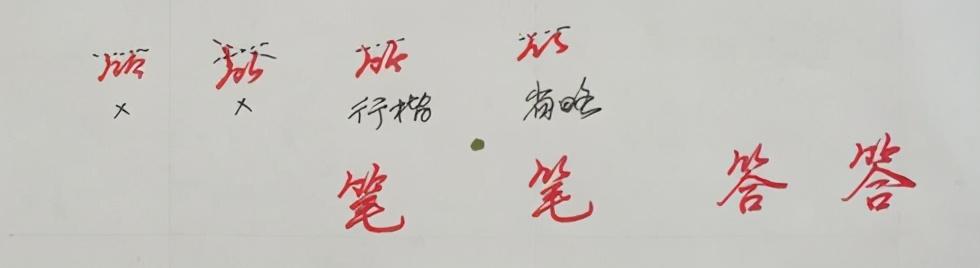 ⺮ ⺮ ⺮ ⺮
× × 行楷 省略
笔 笔 答 答